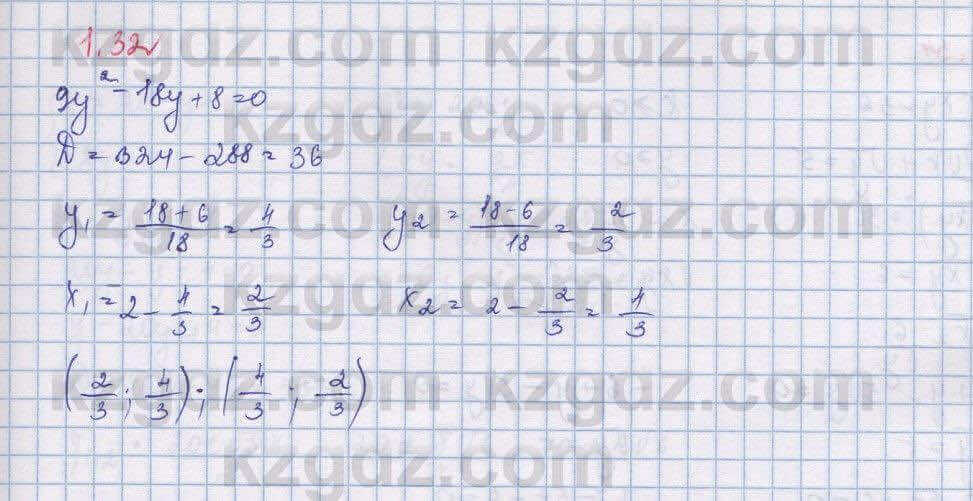 1.32
9y² - 18y + 8 = 0
D = 324 - 288 = 36
y₁ = (18 + 6)/18 = 4/3    y₂ = (18 - 6)/18 = 2/3
x₁ = 2 - 4/3 = 2/3    x₂ = 2 - 2/3 = 4/3
(2/3; 4/3); (4/3; 2/3)
kzgdz.com kzgdz.com
kzgdz.com
kzgdz.com kzgdz.com
kzgdz.com
kzgdz.com kzgdz.com
kzgdz.com
kzgdz.com kzgdz.com
kzgdz.com